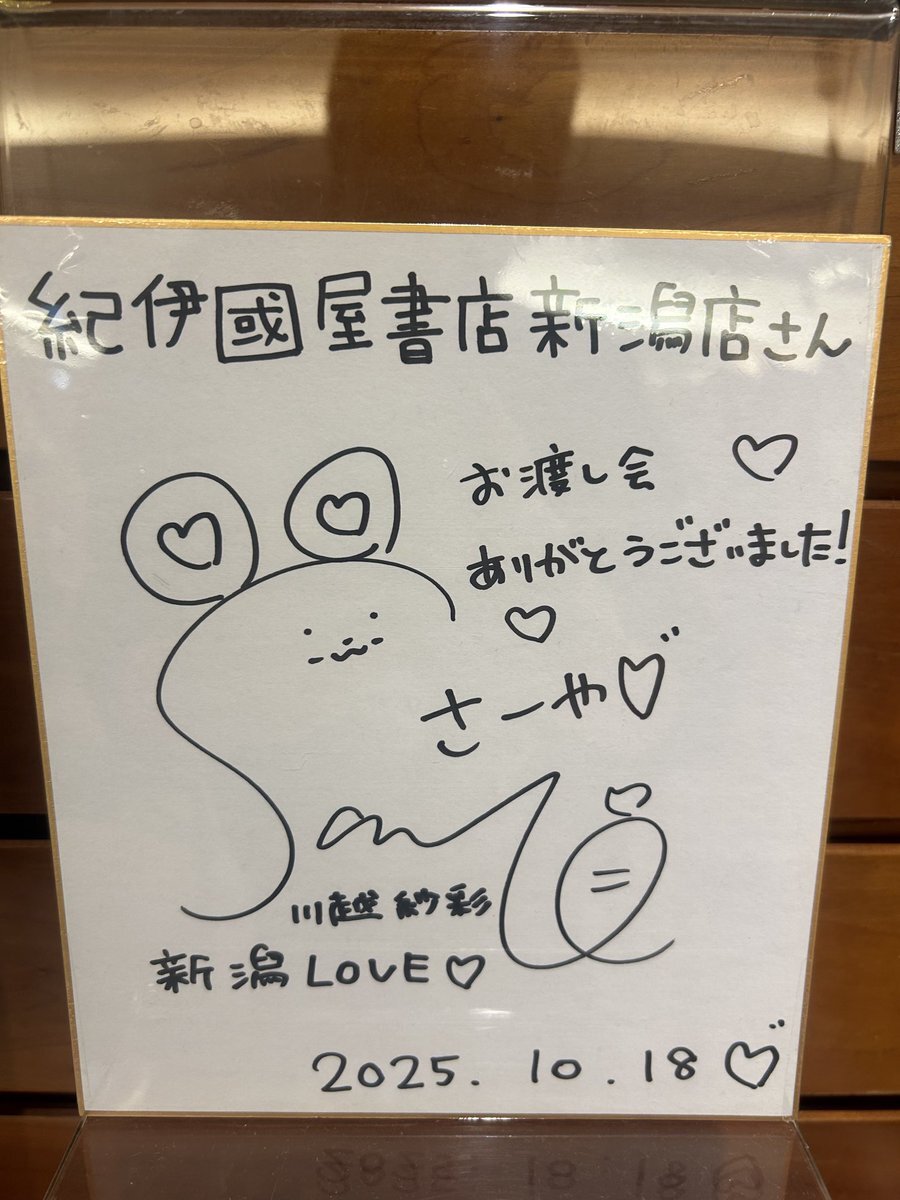 紀伊國屋書店新潟店さん
お渡し会
ありがとうございました!
さーや
川越紗彩
新潟LOVE♡
2025.10.18